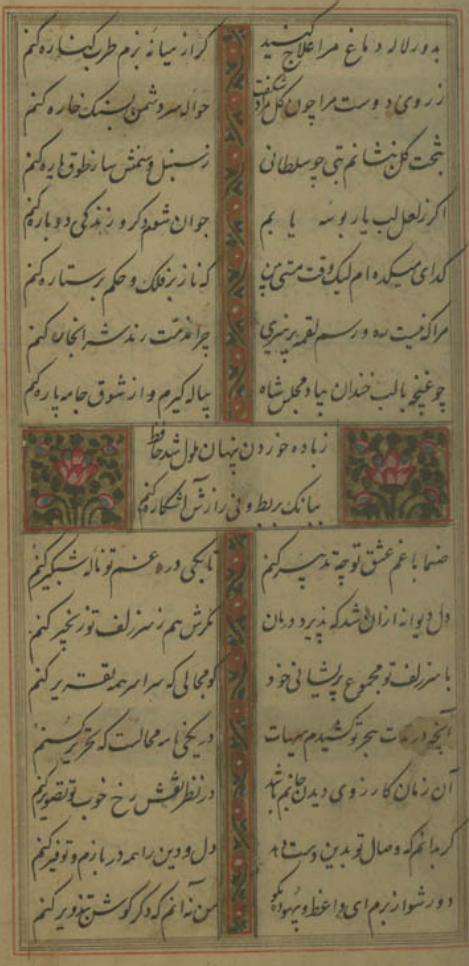 بدور لاله دماغ مرا علاج کنید گر از میانه بزم طرب کناره کنم
ز روی دوست مرا چون گل مراد شکفت حواله سر دشمن بسنگ خاره کنم
بتخت گل بنشانم بتی چو سلطانی ز سنبل و سمنش ساز طوق و یاره کنم
اگر ز لعل لب یار بوسه یابم جوان شوم دگر و زندگی دوباره کنم
گدای میکده ام لیک وقت مستی بین که ناز بر فلک و حکم بر ستاره کنم
مرا که نیست ره و رسم لقمه پرهیزی چرا مذمت رند شرابخاره کنم
چو غنچه با لب خندان بیاد مجلس شاه پیاله گیرم و از شوق جامه پاره کنم
زباده خوردن پنهان ملول شد حافظ
ببانک بربط و نی رازش آشکاره کنم
صنما با غم عشق تو چه تدبیر کنم تا بکی در غم تو ناله شبگیر کنم
دل دیوانه از ان شد که پذیرد درمان مگرش هم ز سر زلف تو زنجیر کنم
با سر زلف تو مجموع پریشانی خود کو مجالی که سراسر همه تقریر کنم
آنچه در مدت هجر تو کشیدم هیهات در یکی نامه محالست که تحریر کنم
آن زمان کارزوی دیدن جانم باشد در نظر نقش رخ خوب تو تصویر کنم
گر بدانم که وصال تو بدین دست دهد دل و دین را همه در بازم و توفیر کنم
دور شو از برم ای واعظ و بیهوده مگو من نه آنم که دگر گوش بتزویر کنم